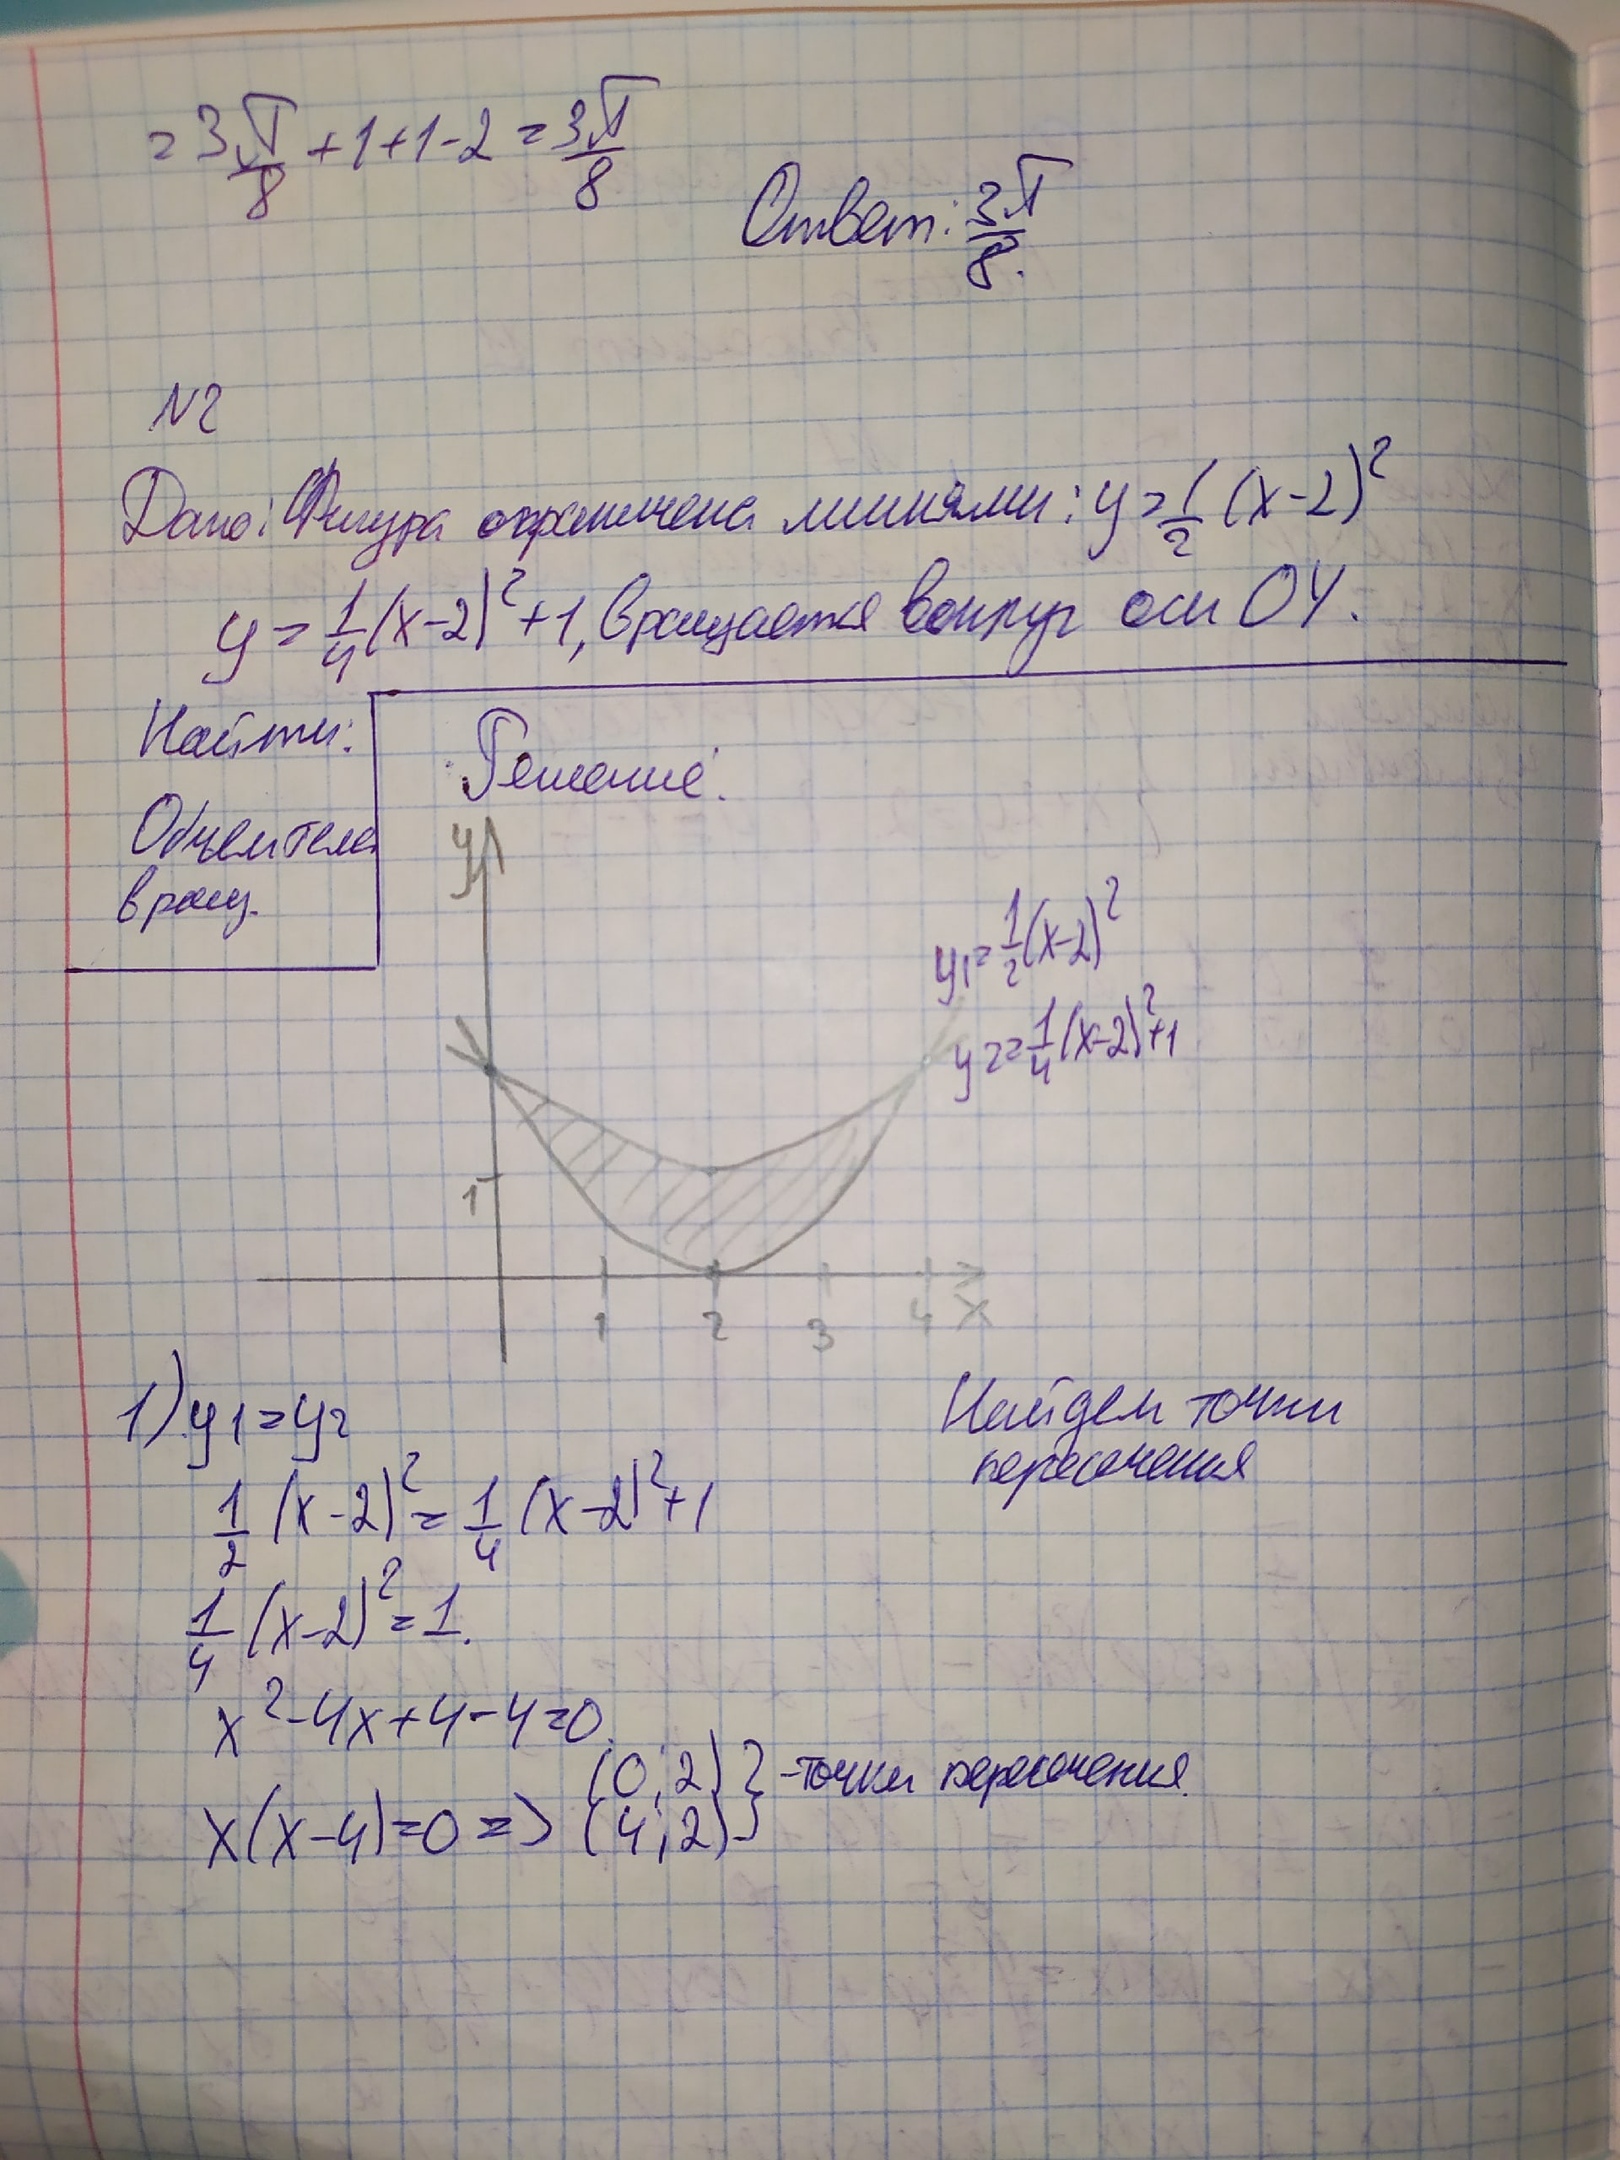 = 3π/8 + 1 + 1 - 2 = 3π/8
Ответ: 3π/8.
N2
Дано: Фигура ограничена линиями: y = 1/2 (x-2)²
y = 1/4 (x-2)² + 1, вращается вокруг оси OY.
Найти:
Объем тела
вращ.
Решение:
y
y1 = 1/2 (x-2)²
y2 = 1/4 (x-2)² + 1
1
1 2 3 4 x
1) y1 = y2
Найдем точки
пересечения
1/2 (x-2)² = 1/4 (x-2)² + 1
1/4 (x-2)² = 1.
x² - 4x + 4 - 4 = 0.
x(x-4) = 0 => (0; 2) (4; 2) } - точки пересечения.